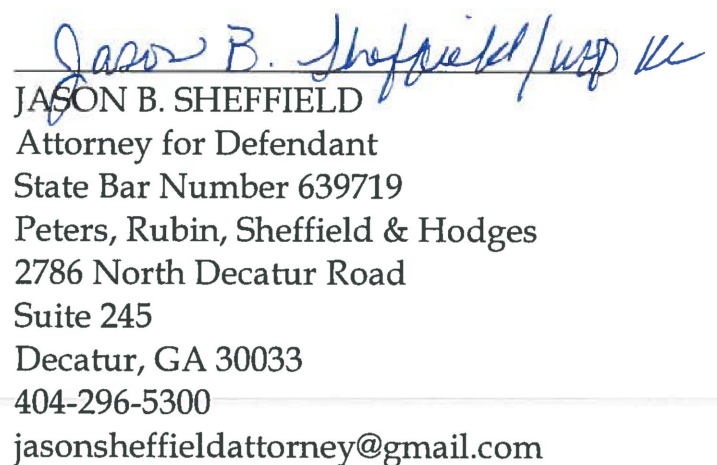 Jason B. Sheffield/wep KC
JASON B. SHEFFIELD
Attorney for Defendant
State Bar Number 639719
Peters, Rubin, Sheffield & Hodges
2786 North Decatur Road
Suite 245
Decatur, GA 30033
404-296-5300
jasonsheffieldattorney@gmail.com